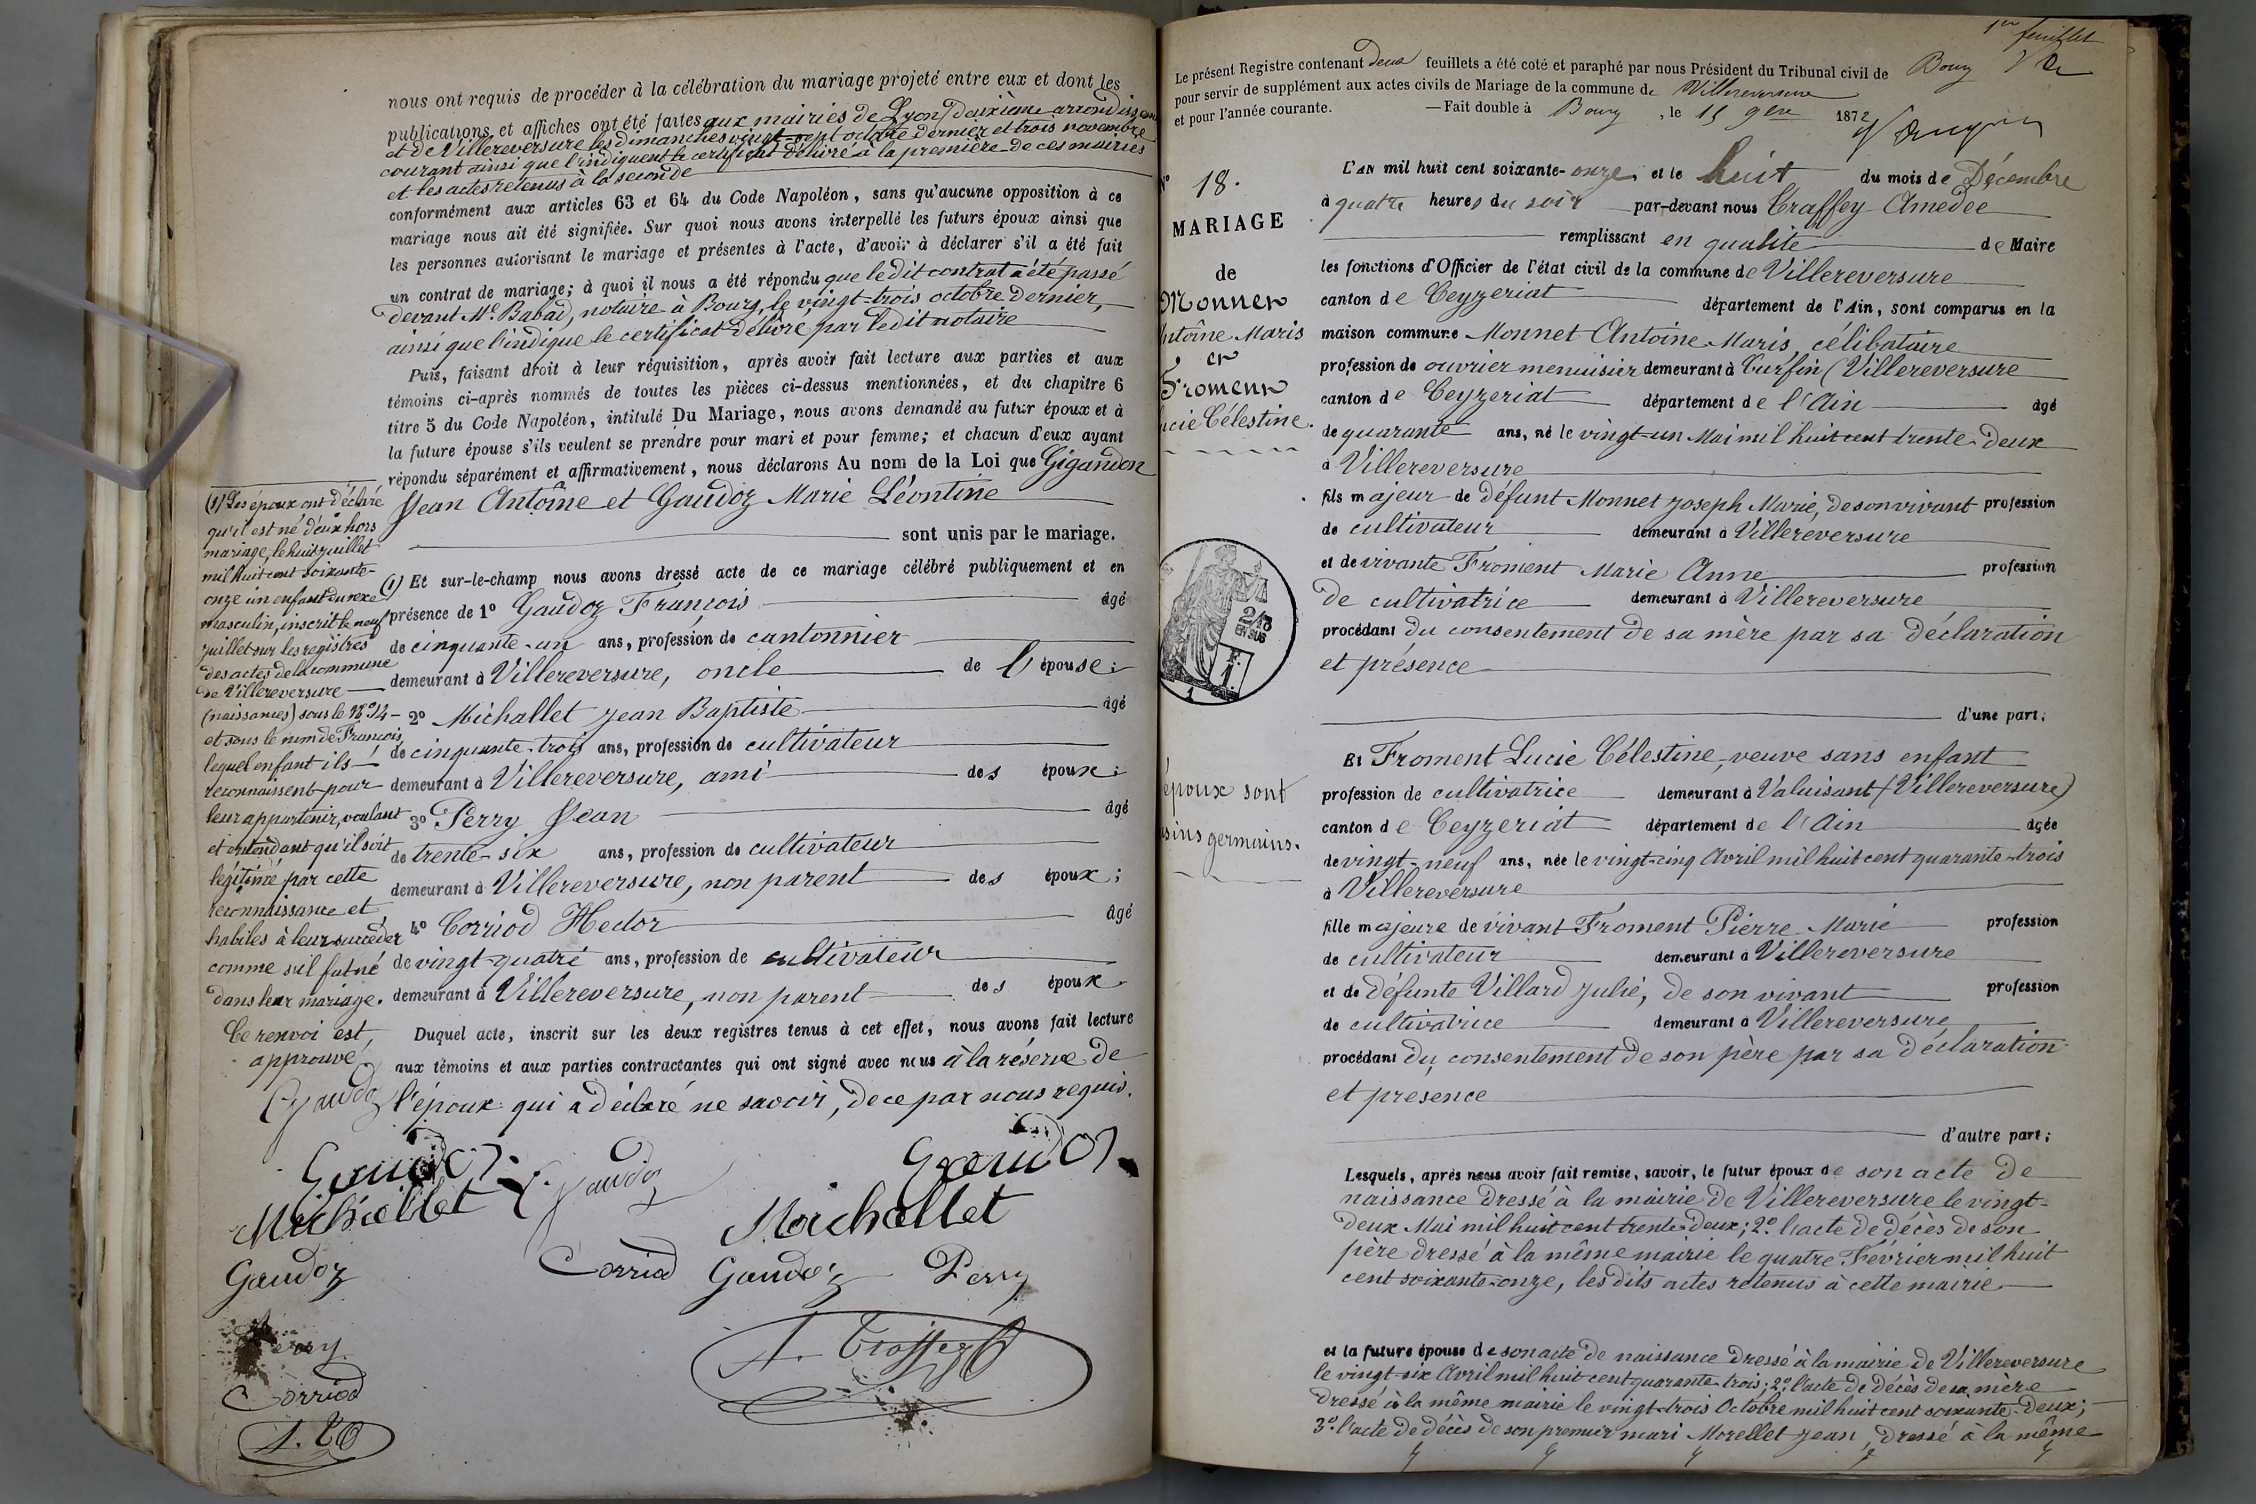 nous ont requis de procéder à la célébration du mariage projeté entre eux et dont les
publications et affiches ont été faites aux mairies de Lyon, deuxième
et de Villereversure les dimanches vingt-sept octobre dernier et trois novembre
courant ainsi que l'indiquent le certificat délivré à la première de ces mairies
et les actes retenus à la seconde
conformément aux articles 63 et 64 du Code Napoléon, sans qu'aucune opposition à ce
mariage nous ait été signifiée. Sur quoi nous avons interpellé les futurs époux ainsi que
les personnes autorisant le mariage et présentes à l'acte, d'avoir à déclarer s'il a été fait
un contrat de mariage; à quoi il nous a été répondu que le dit contrat a été passé
devant Me. Babad, notaire à Bourg, le vingt-trois octobre dernier,
ainsi que l'indique le certificat délivré par le dit notaire
Puis, faisant droit à leur réquisition, après avoir fait lecture aux parties et aux
témoins ci-après nommés de toutes les pièces ci-dessus mentionnées, et du chapitre 6
titre 5 du Code Napoléon, intitulé Du Mariage, nous avons demandé au futur époux et à
la future épouse s'ils veulent se prendre pour mari et pour femme; et chacun d'eux ayant
répondu séparément et affirmativement, nous déclarons Au nom de la Loi que Gigandon
Jean Antoine et Gaudoz Marie Léontine
sont unis par le mariage.
(1) Et sur-le-champ nous avons dressé acte de ce mariage célébré publiquement et en
présence de 1º Gaudoz François âgé
de cinquante-un ans, profession de cantonnier
demeurant à Villereversure, oncle de l'épouse;
2º Michallet Jean Baptiste âgé
de cinquante-trois ans, profession de cultivateur
demeurant à Villereversure, ami des époux;
3º Perry Jean âgé
de trente-six ans, profession de cultivateur
demeurant à Villereversure, non parent des époux;
4º Corriod Hector âgé
de vingt-quatre ans, profession de cultivateur
demeurant à Villereversure, non parent des époux
Duquel acte, inscrit sur les deux registres tenus à cet effet, nous avons fait lecture
aux témoins et aux parties contractantes qui ont signé avec nous à la réserve de
l'époux qui a déclaré ne savoir, de ce par nous requis.
(1) Les époux ont déclaré
qu'il est né d'eux hors
mariage, le huit juillet
mil huit cent soixante-
onze un enfant du sexe
masculin, inscrit le neuf
juillet sur les registres
des actes de la commune
de Villereversure
(naissances) sous le Nº 14
et sous le nom de François
lequel enfant ils
reconnaissent pour
leur appartenir, voulant
et entendant qu'il soit
légitimé par cette
reconnaissance et
habiles à leur succéder
comme s'il fut né
dans leur mariage.
Ce renvoi est
approuvé
Gaudoz
Gaudoz Gaudoz Gaudoz
Michallet Michallet
Gaudoz Corriod Gaudoz Perry
Perry A. Traffey
Corriod
A. T
1er feuillet
Le présent Registre contenant deux feuillets a été coté et paraphé par nous Président du Tribunal civil de Bourg
pour servir de supplément aux actes civils de Mariage de la commune de Villereversure
et pour l'année courante. — Fait double à Bourg, le 15 9bre 1872
Nº 18.
MARIAGE
de
Monnet
Antoine Maris
et
Froment
Lucie Célestine.
2/10
EN SUS
F.
1.
époux sont
cousins germains.
L'AN mil huit cent soixante-onze et le huit du mois de Décembre
à quatre heures du soir par-devant nous Traffey Amedée
remplissant en qualité de Maire
les fonctions d'Officier de l'état civil de la commune de Villereversure
canton de Ceyzeriat département de l'Ain, sont comparus en la
maison commune Monnet Antoine Maris, célibataire
profession de ouvrier menuisier demeurant à Curfin (Villereversure
canton de Ceyzeriat département de l'Ain âgé
de quarante ans, né le vingt-un Mai mil huit cent trente-deux
à Villereversure
fils majeur de défunt Monnet Joseph Marie, de son vivant profession
de cultivateur demeurant à Villereversure
et de vivante Froment Marie Anne profession
de cultivatrice demeurant à Villereversure
procédant du consentement de sa mère par sa déclaration
et présence
d'une part;
Et Froment Lucie Célestine, veuve sans enfant
profession de cultivatrice demeurant à Valuisant (Villereversure)
canton de Ceyzeriat département de l'Ain âgée
de vingt-neuf ans, née le vingt-cinq Avril mil huit cent quarante-trois
à Villereversure
fille majeure de vivant Froment Pierre Marie profession
de cultivateur demeurant à Villereversure
et de défunte Villard Julie, de son vivant profession
de cultivatrice demeurant à Villereversure
procédant du consentement de son père par sa déclaration
et presence
d'autre part;
Lesquels, après nous avoir fait remise, savoir, le futur époux de son acte de
naissance dressé à la mairie de Villereversure le vingt-
deux Mai mil huit cent trente-deux; 2º. l'acte de décès de son
père dressé à la même mairie le quatre Février mil huit
cent soixante-onze, les dits actes retenus à cette mairie
et la future épouse de son acte de naissance dressé à la mairie de Villereversure
le vingt-six Avril mil huit cent quarante-trois; 2º. l'acte de décès de sa mère
dressé à la même mairie le vingt-trois Octobre mil huit cent soixante-deux;
3º. l'acte de décès de son premier mari Morellet Jean, dressé à la même